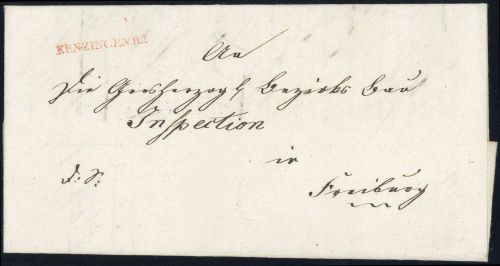 KENZINGEN.R.I
An
Die Grosherzogl Bezirks Bau
Inspection
in
d: S:
Freiburg